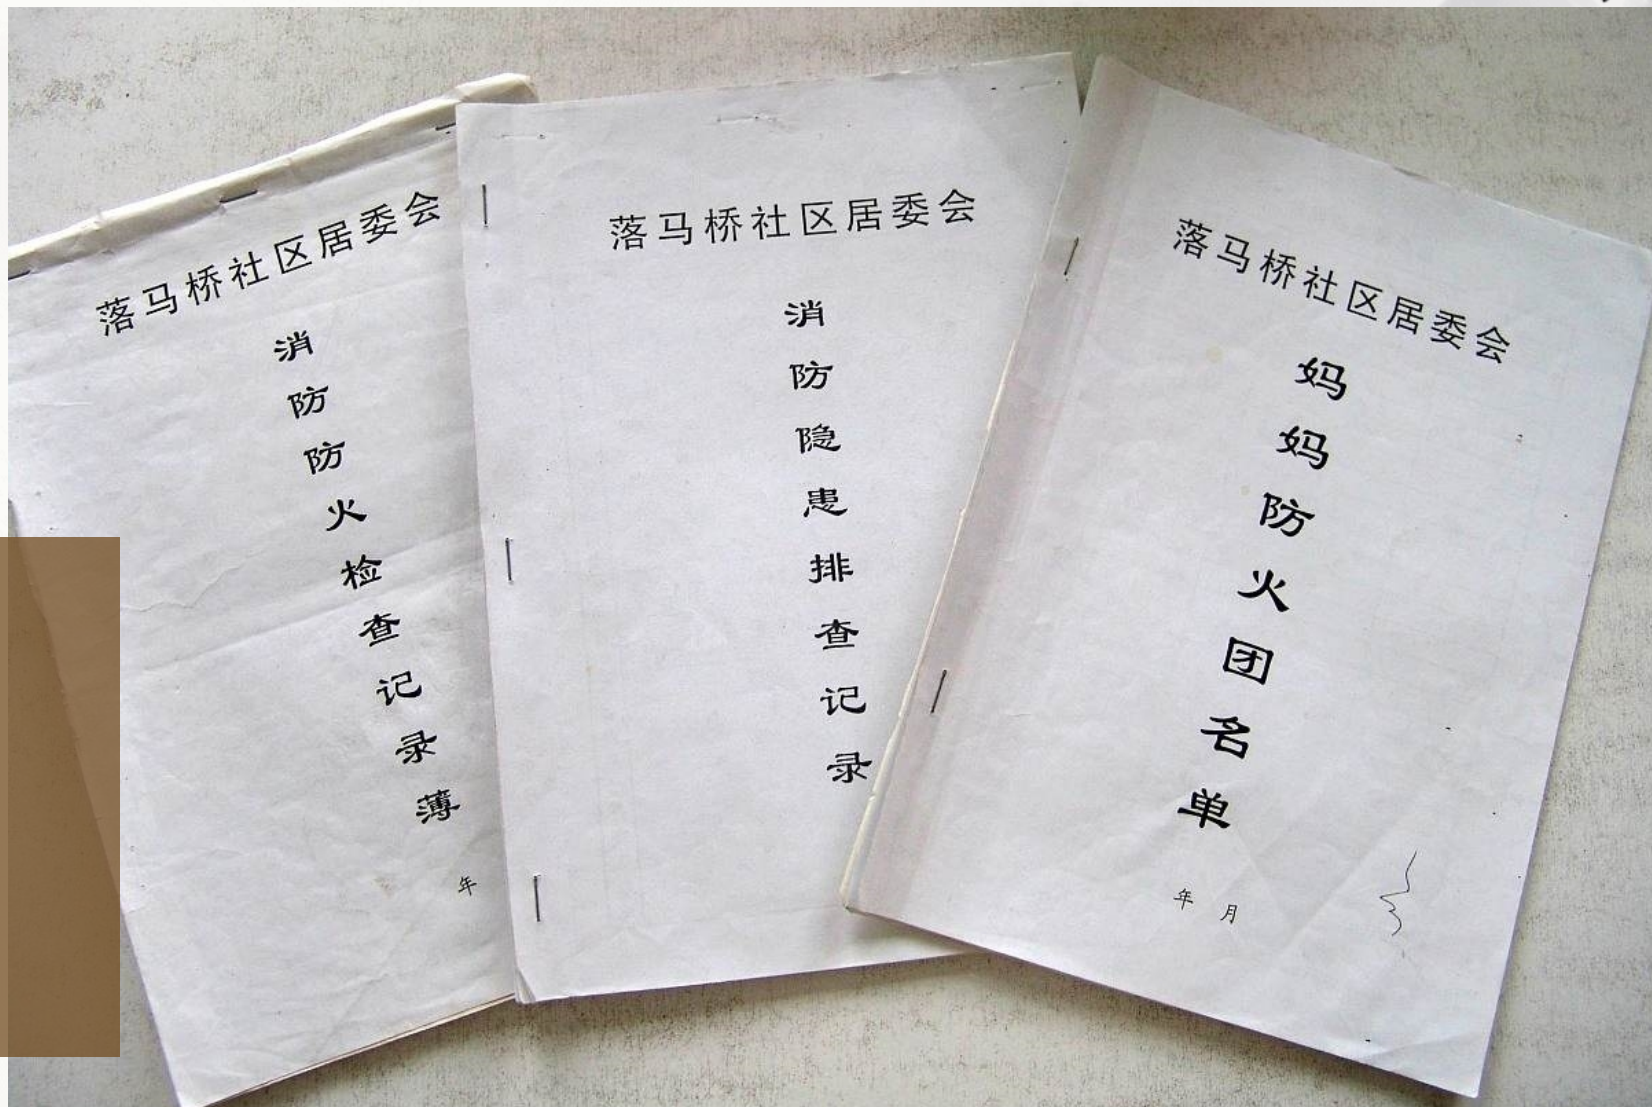 落马桥社区居委会
消防防火检查记录薄
年
落马桥社区居委会
消防隐患排查记录
落马桥社区居委会
妈妈防火团名单
年 月